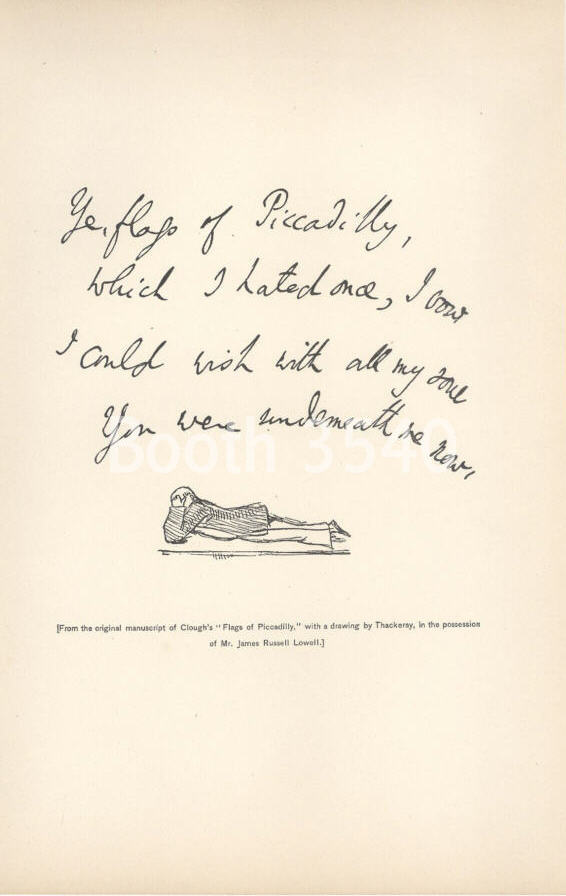 Ye, flags of Piccadilly,
which I hated once, I vow
I could wish with all my soul
You were underneath me now,
Booth 3540
[From the original manuscript of Clough's "Flags of Piccadilly," with a drawing by Thackeray, in the possession
of Mr. James Russell Lowell.]